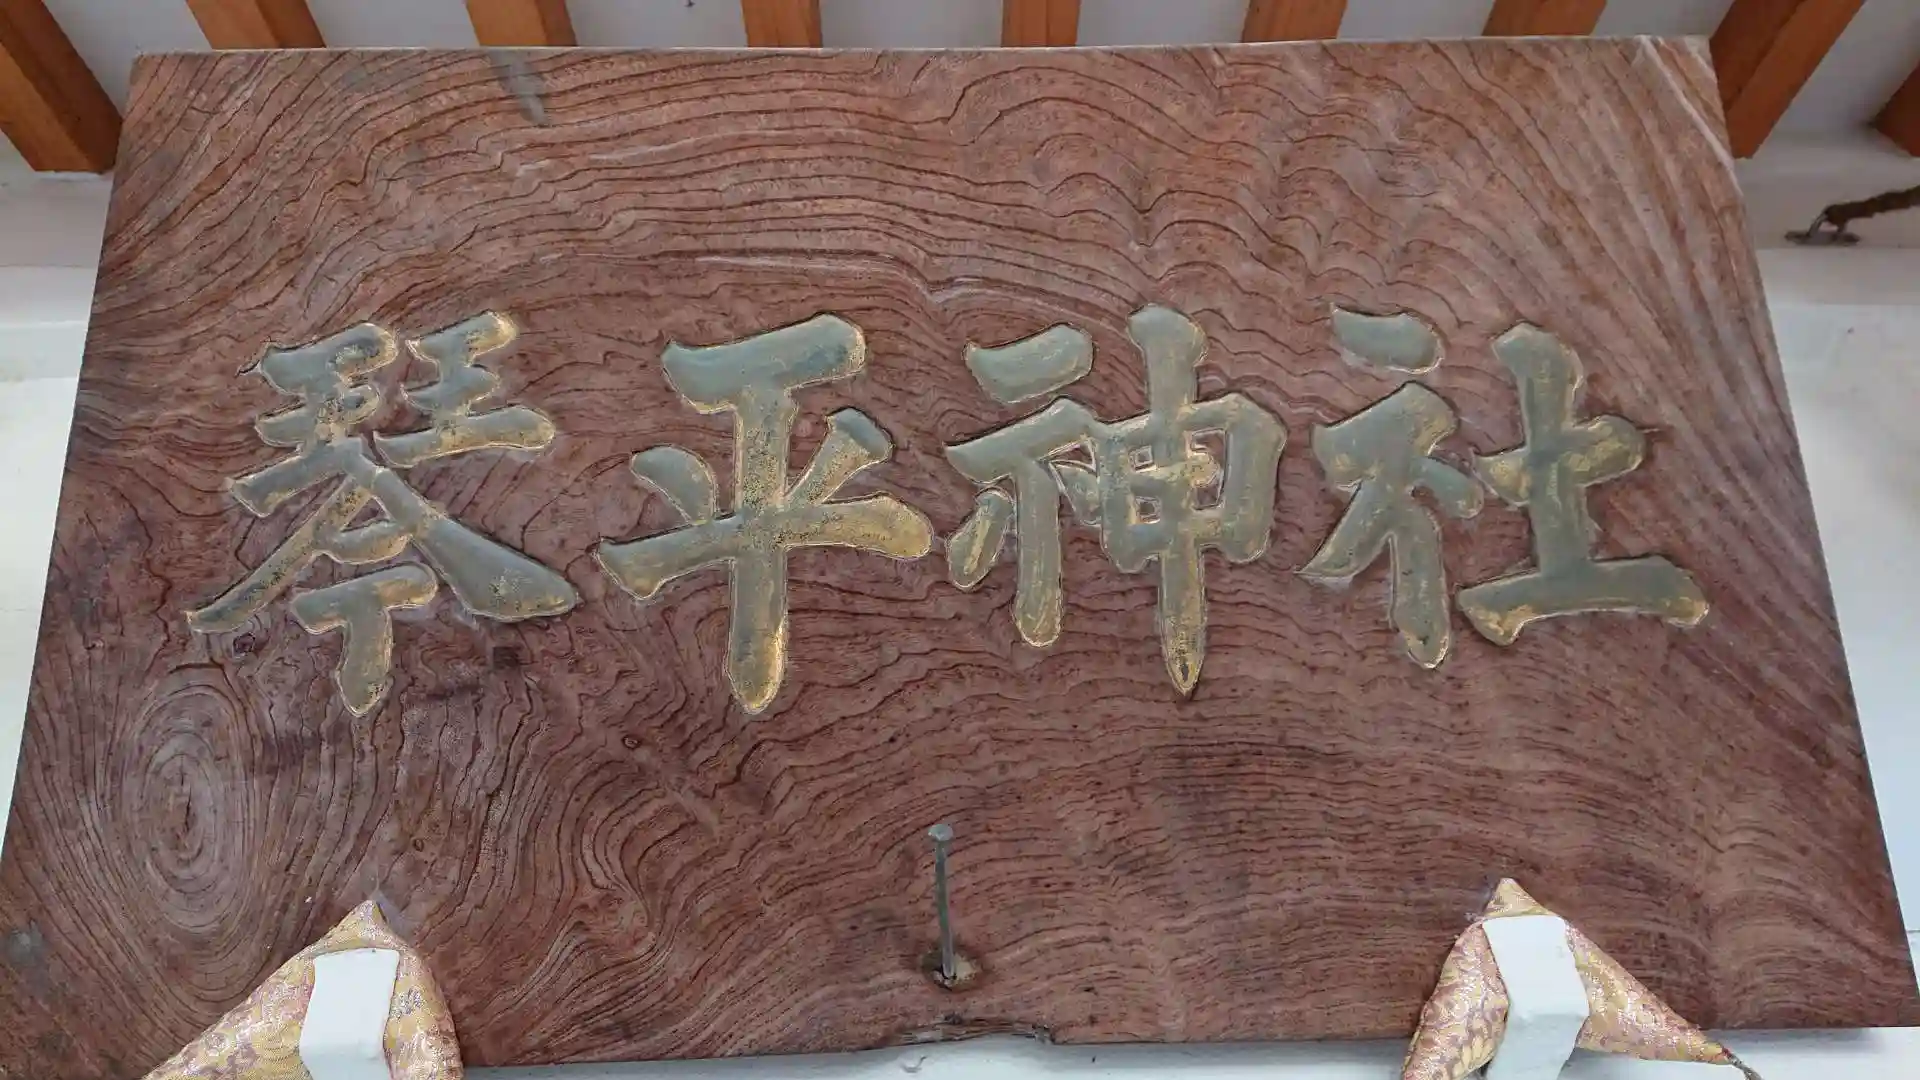 琴平神社